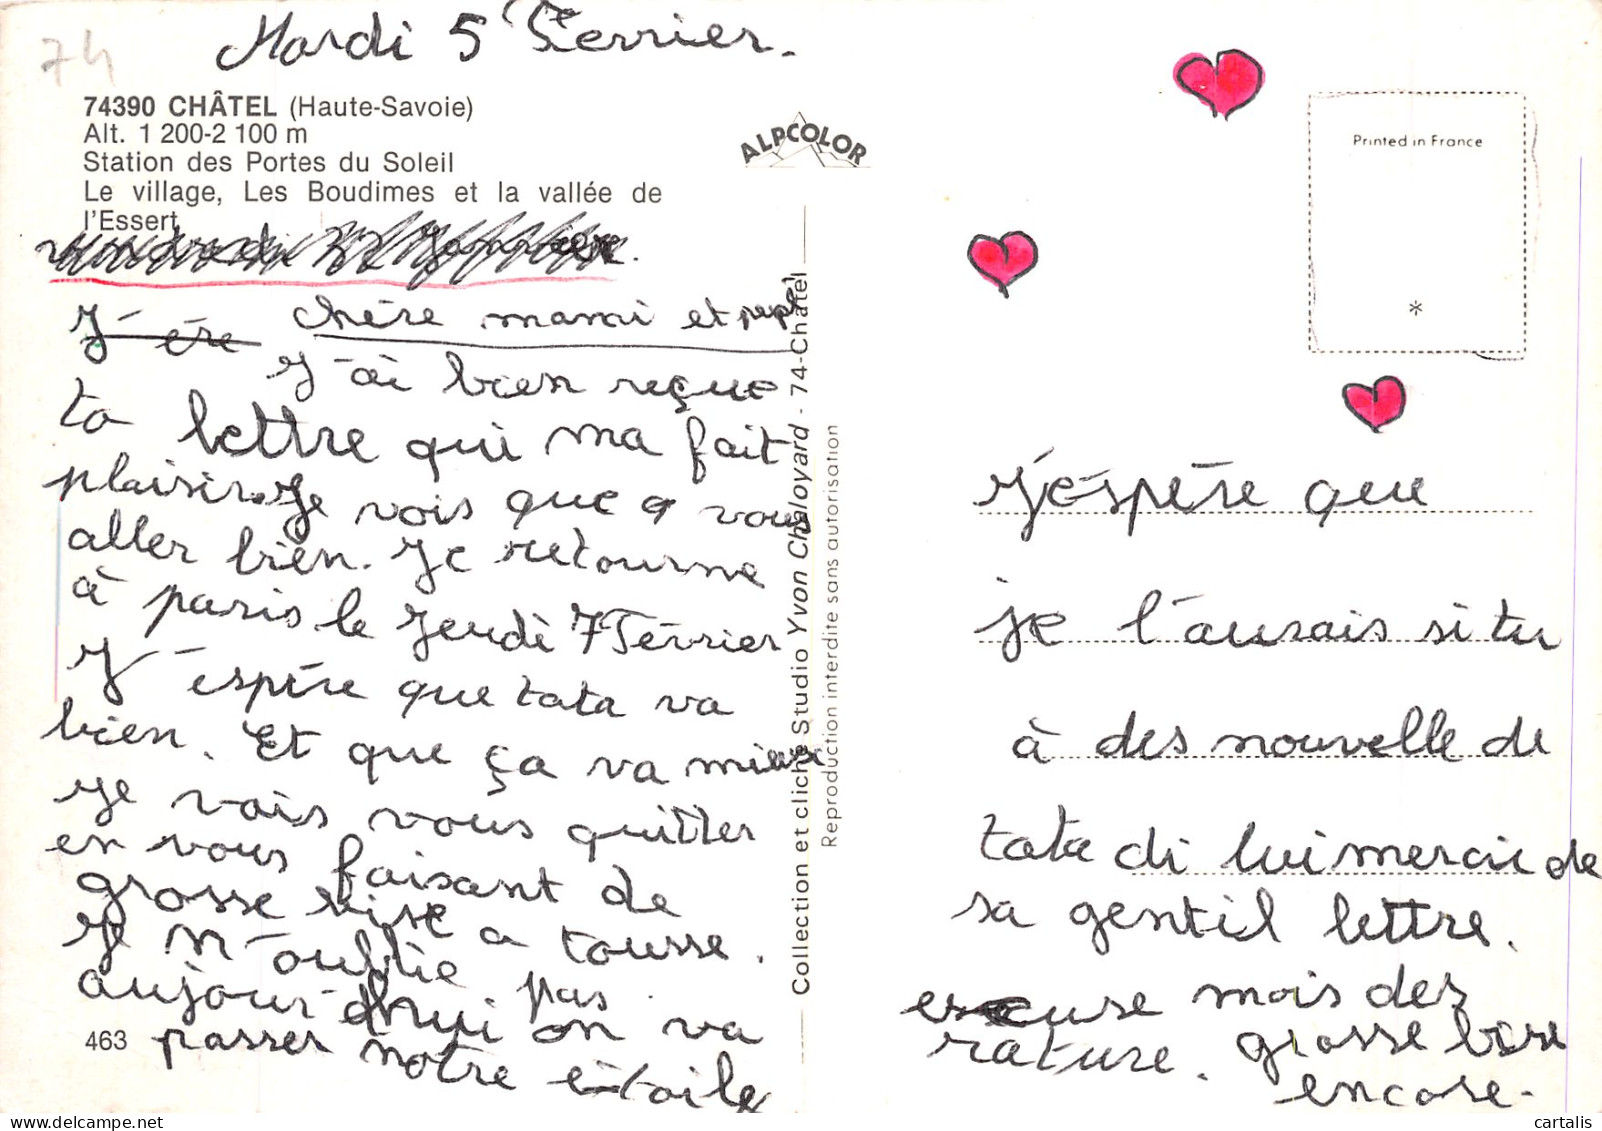 74
Mardi 5 Ferrier.
74390 CHÂTEL (Haute-Savoie)
Alt. 1 200-2 100 m
Station des Portes du Soleil
Le village, Les Boudimes et la vallée de
l'Essert
J' ère chère mami et papi
J'ai bien reçue
ta lettre qui ma fait
plaisir. Je vois que vous
aller bien. Je retourne
à paris le Jeudi 7 Février
J'espère que tata va
bien. Et que ça va mieu
Je vais vous quitter
en vous faisant de
grosse bise a tousse.
Je n'oublie pas.
aujour d'hui on va
passer notre étoile
463
ALPCOLOR
Collection et cliché Studio Yvon Chaloyard - 74-Châtel
Reproduction interdite sans autorisation
Printed in France
*
J'éspère que
je l'aurais si tu
à des nouvelle de
tata di lui mercie de
sa gentil lettre.
excuse mois des
rature. grosse bise
encore.
cartalis